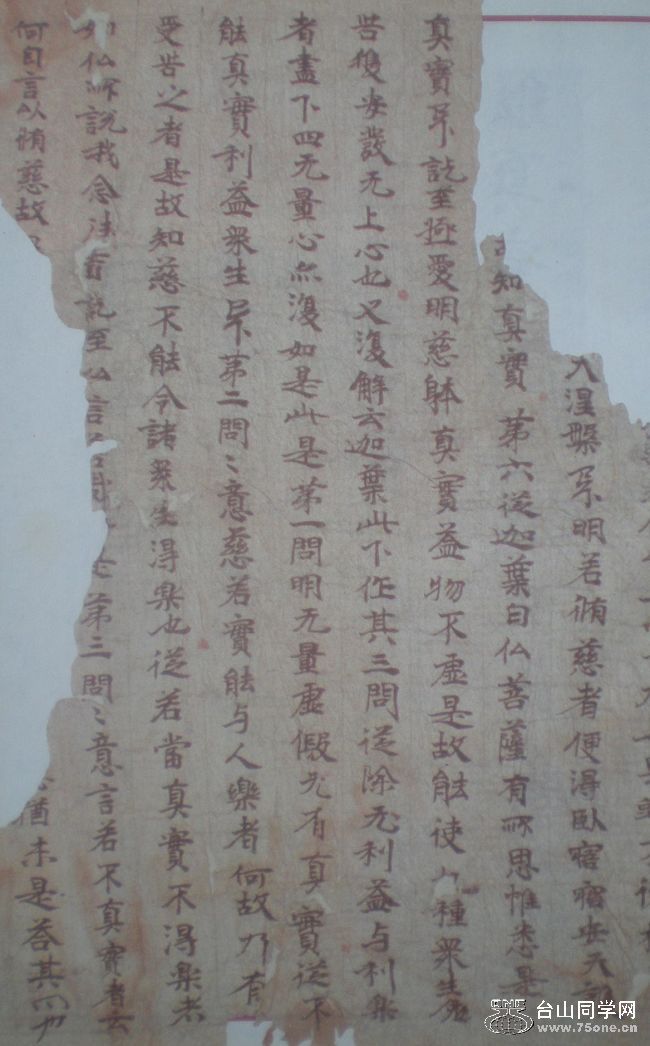 入涅槃乐明若脩慈者便得臥寤寤安天
知真實 第六從迦葉白仏菩薩有所思惟悉是
真實乐訖至極愛明慈躰真實益物不虛是故能使九種衆生
苦復安發无上心也又復解云迦葉此下作其三問從除无利益与利樂
者盡下四无量心亦復如是此是第一問明无量虛假无有真實從不
能真實利益衆生乐第二問〻意慈若實能与人樂者何故乃有
受苦之者是故知慈不能令諸衆生得樂也從若當真實不得樂者
如仏所說我念法 訖至 言 第三問〻意言若不真實者云
何自言以脩慈故 猶未是答其
台山同学网
www.75one.cn